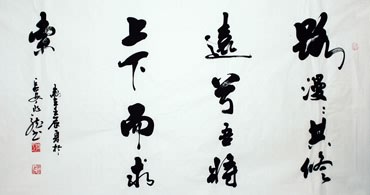 路漫漫其修
遠兮吾將
上下而求
索